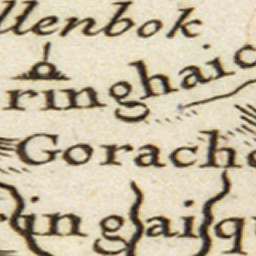 llenbok
ringhaic
Gorach
ingaiqu